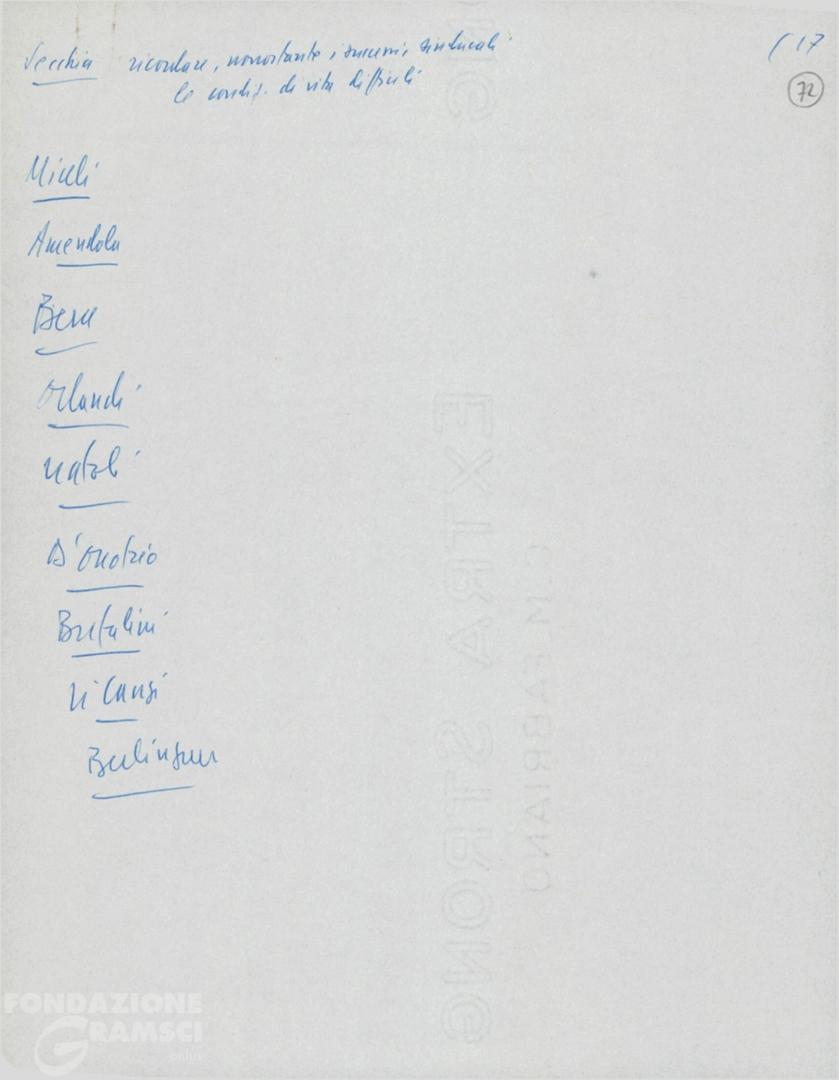 Secchia ricordare, nonostante i successi sindacali
le condiz. di vita difficili
( 17
72
Miceli
Amendola
Bera
Orlandi
Natoli
D'Onofrio
Bufalini
Li Causi
Berlinguer
EXTRA STRONG
C.M. FABRIANO
FONDAZIONE
GRAMSCI
onlus